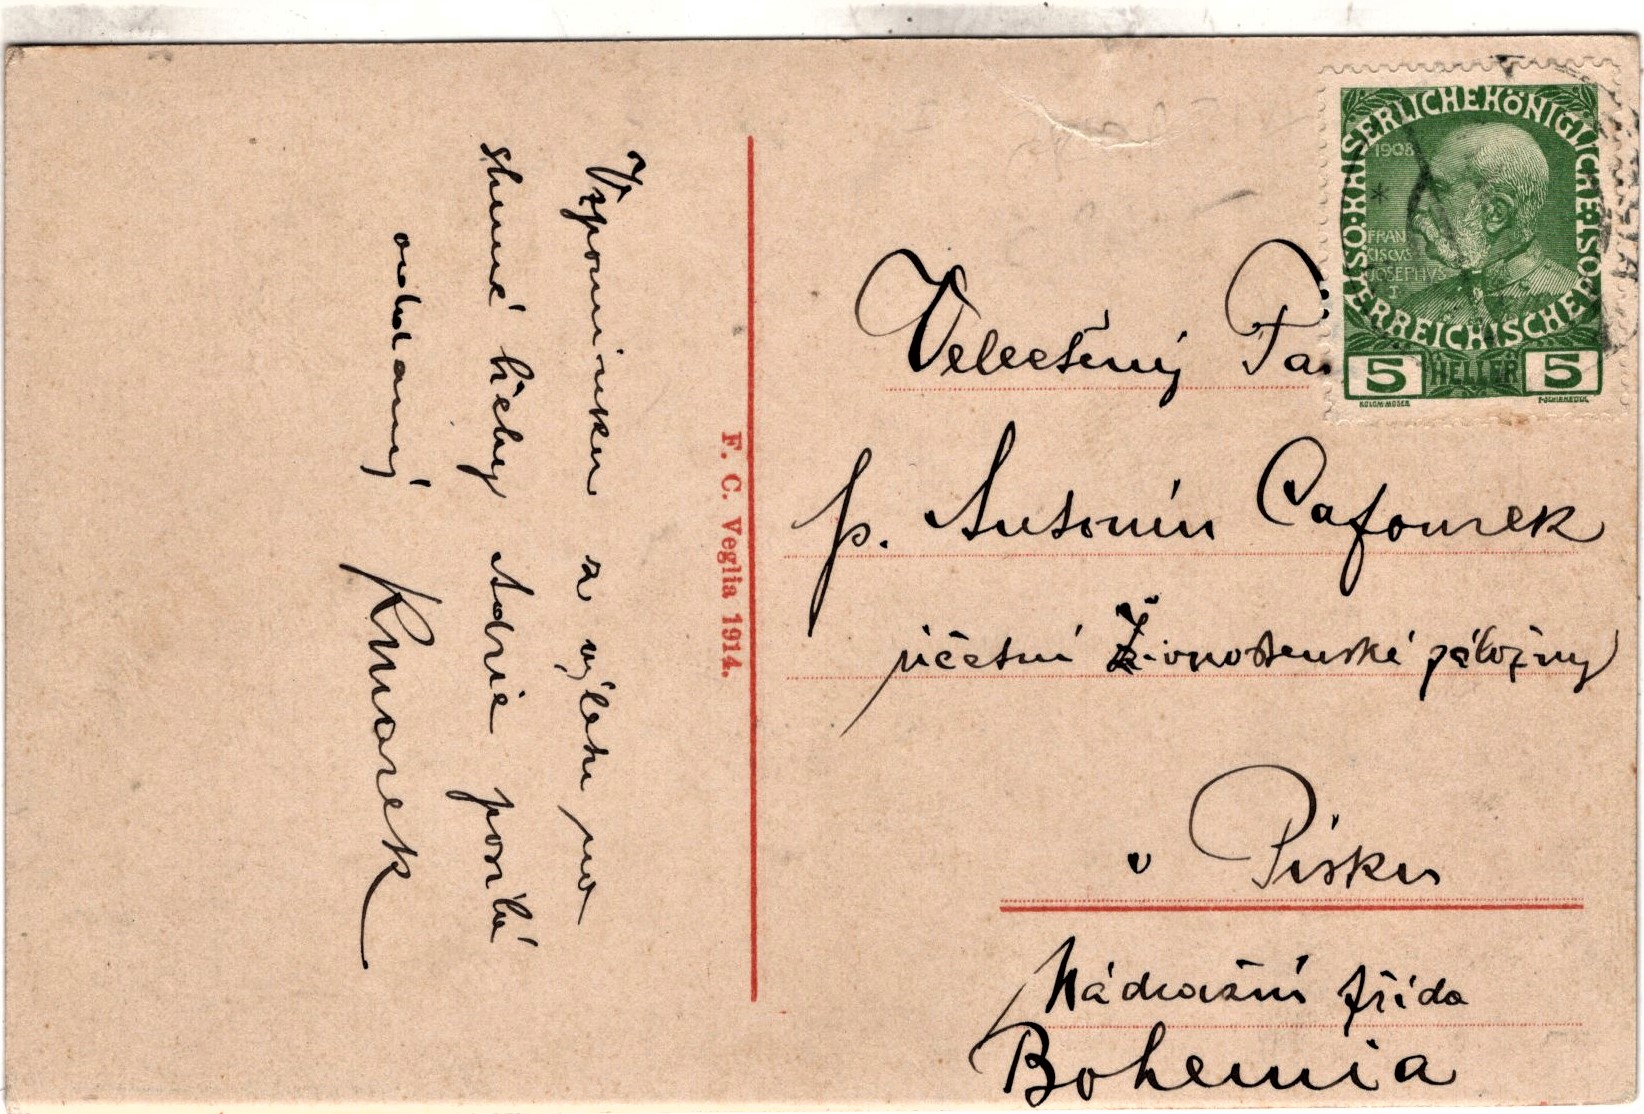 Vzpomínku z výletu na
slunné břehy Adrie posílá
oddaný
Kmorek
F. C. Veglia 1914.
KAISERLICHE KÖNIGLICHE ÖSTERREICHISCHE POST
1908
FRAN
CISCVS
JOSEPHVS
I
5 HELLER 5
KOLOM·MOSER
F·SCHIRNBÖCK
Velectěný Pán
p. Antonín Cafourek
účetní Živnostenské záložny
v Písku
Nádražní třída
Bohemia